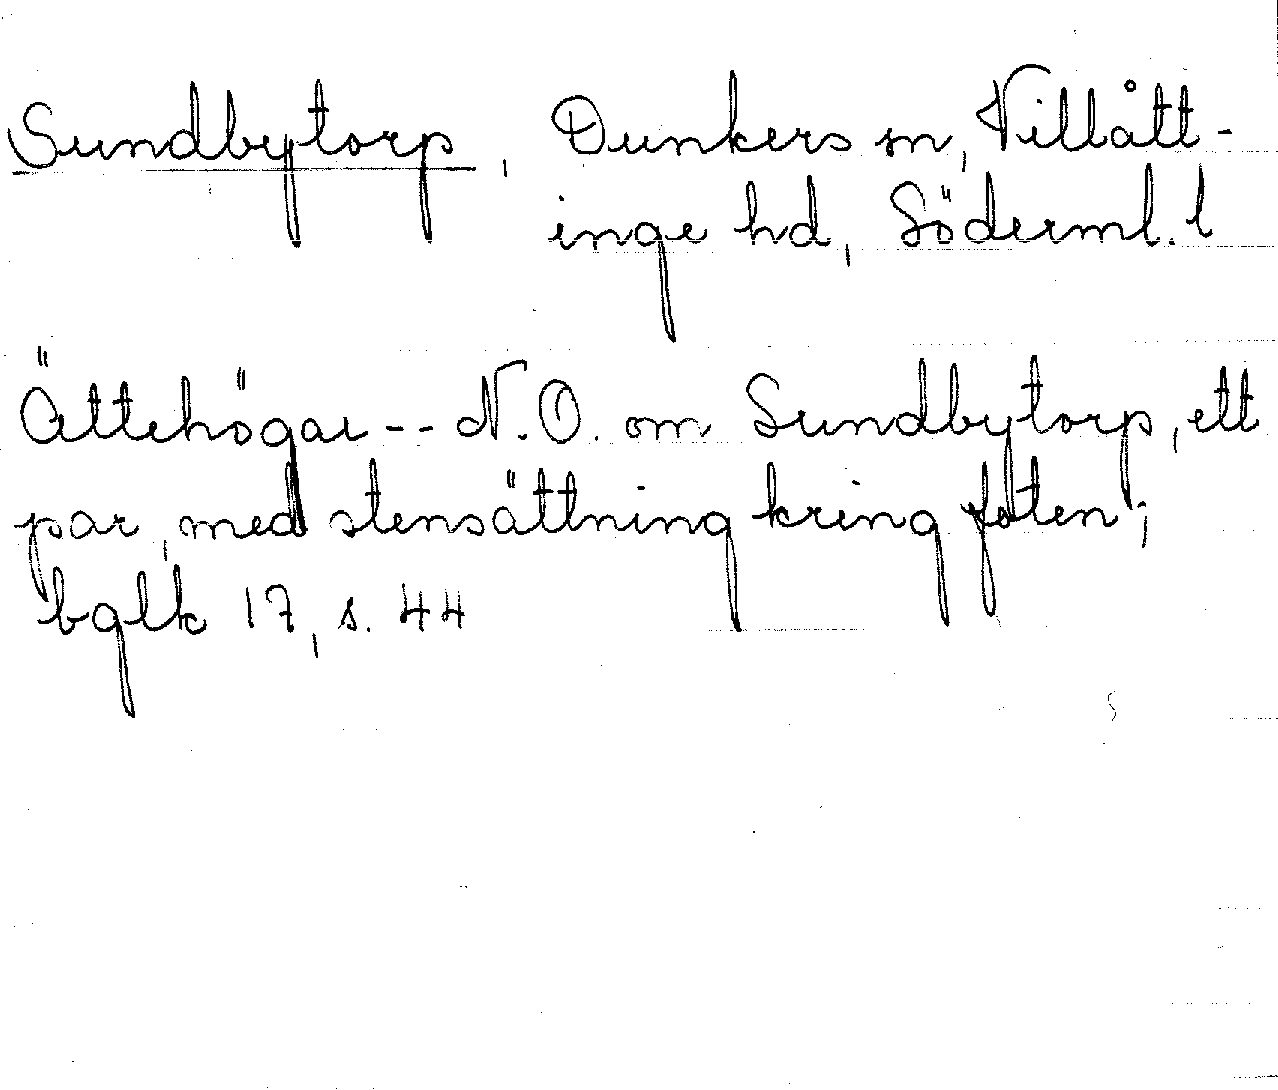 Sundbytorp, Dunkers sn, Villått-
inge hd, Söderml. l
Ättehögar -- N.O. om Sundbytorp, ett
par, med stensättning kring foten;
bglk 17, s. 44